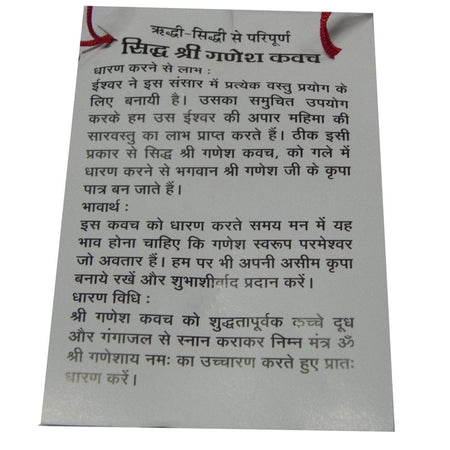 ऋद्धी-सिद्धी से परिपूर्ण
सिद्ध श्री गणेश कवच
धारण करने से लाभ :
ईश्वर ने इस संसार में प्रत्येक वस्तु प्रयोग के
लिए बनायी है। उसका समुचित उपयोग
करके हम उस ईश्वर की अपार महिमा की
सारवस्तु का लाभ प्राप्त करते हैं। ठीक इसी
प्रकार से सिद्ध श्री गणेश कवच, को गले में
धारण करने से भगवान श्री गणेश जी के कृपा
पात्र बन जाते हैं।
भावार्थ :
इस कवच को धारण करते समय मन में यह
भाव होना चाहिए कि गणेश स्वरूप परमेश्वर
जो अवतार हैं। हम पर भी अपनी असीम कृपा
बनाये रखें और शुभाशीर्वाद प्रदान करें।
धारण विधि :
श्री गणेश कवच को शुद्धतापूर्वक कच्चे दूध
और गंगाजल से स्नान कराकर निम्न मंत्र ॐ
श्री गणेशाय नमः का उच्चारण करते हुए प्रातः
धारण करें।